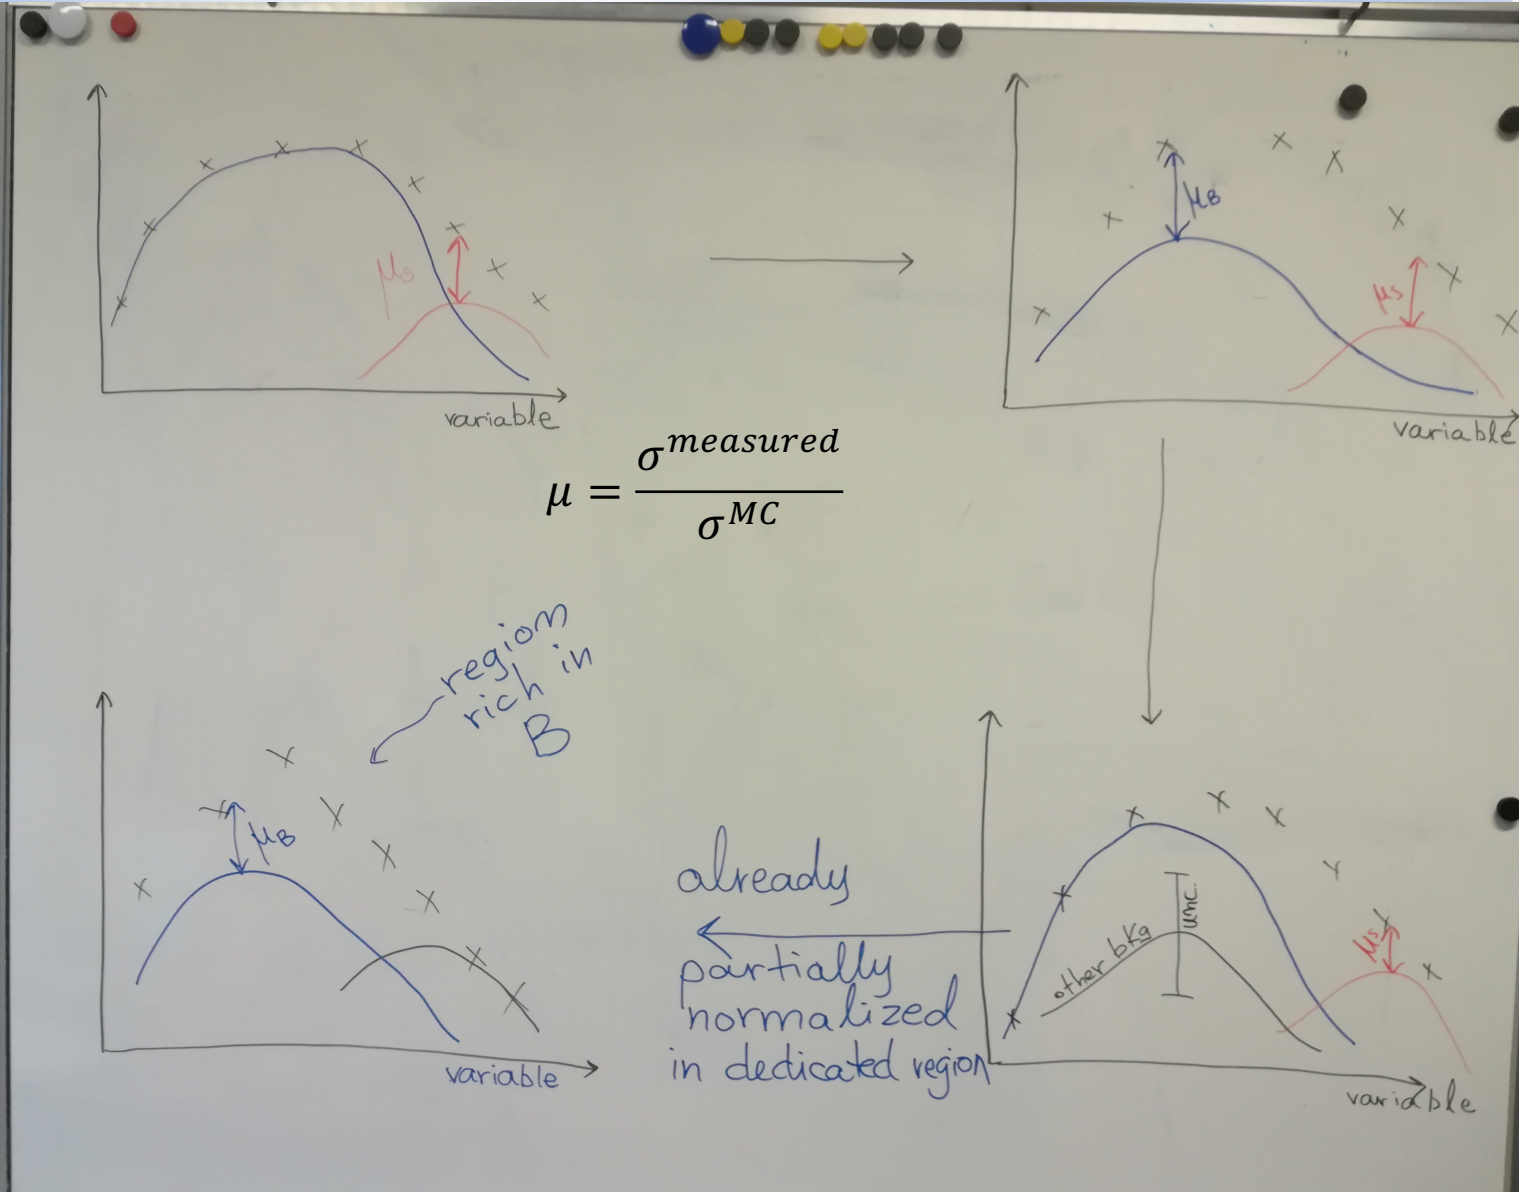 μs
variable
μB
μs
variable
μ = σ^measured / σ^MC
region
rich in
B
μB
variable
already
partially
normalized
in dedicated region
other bkg
unc.
μs
variable